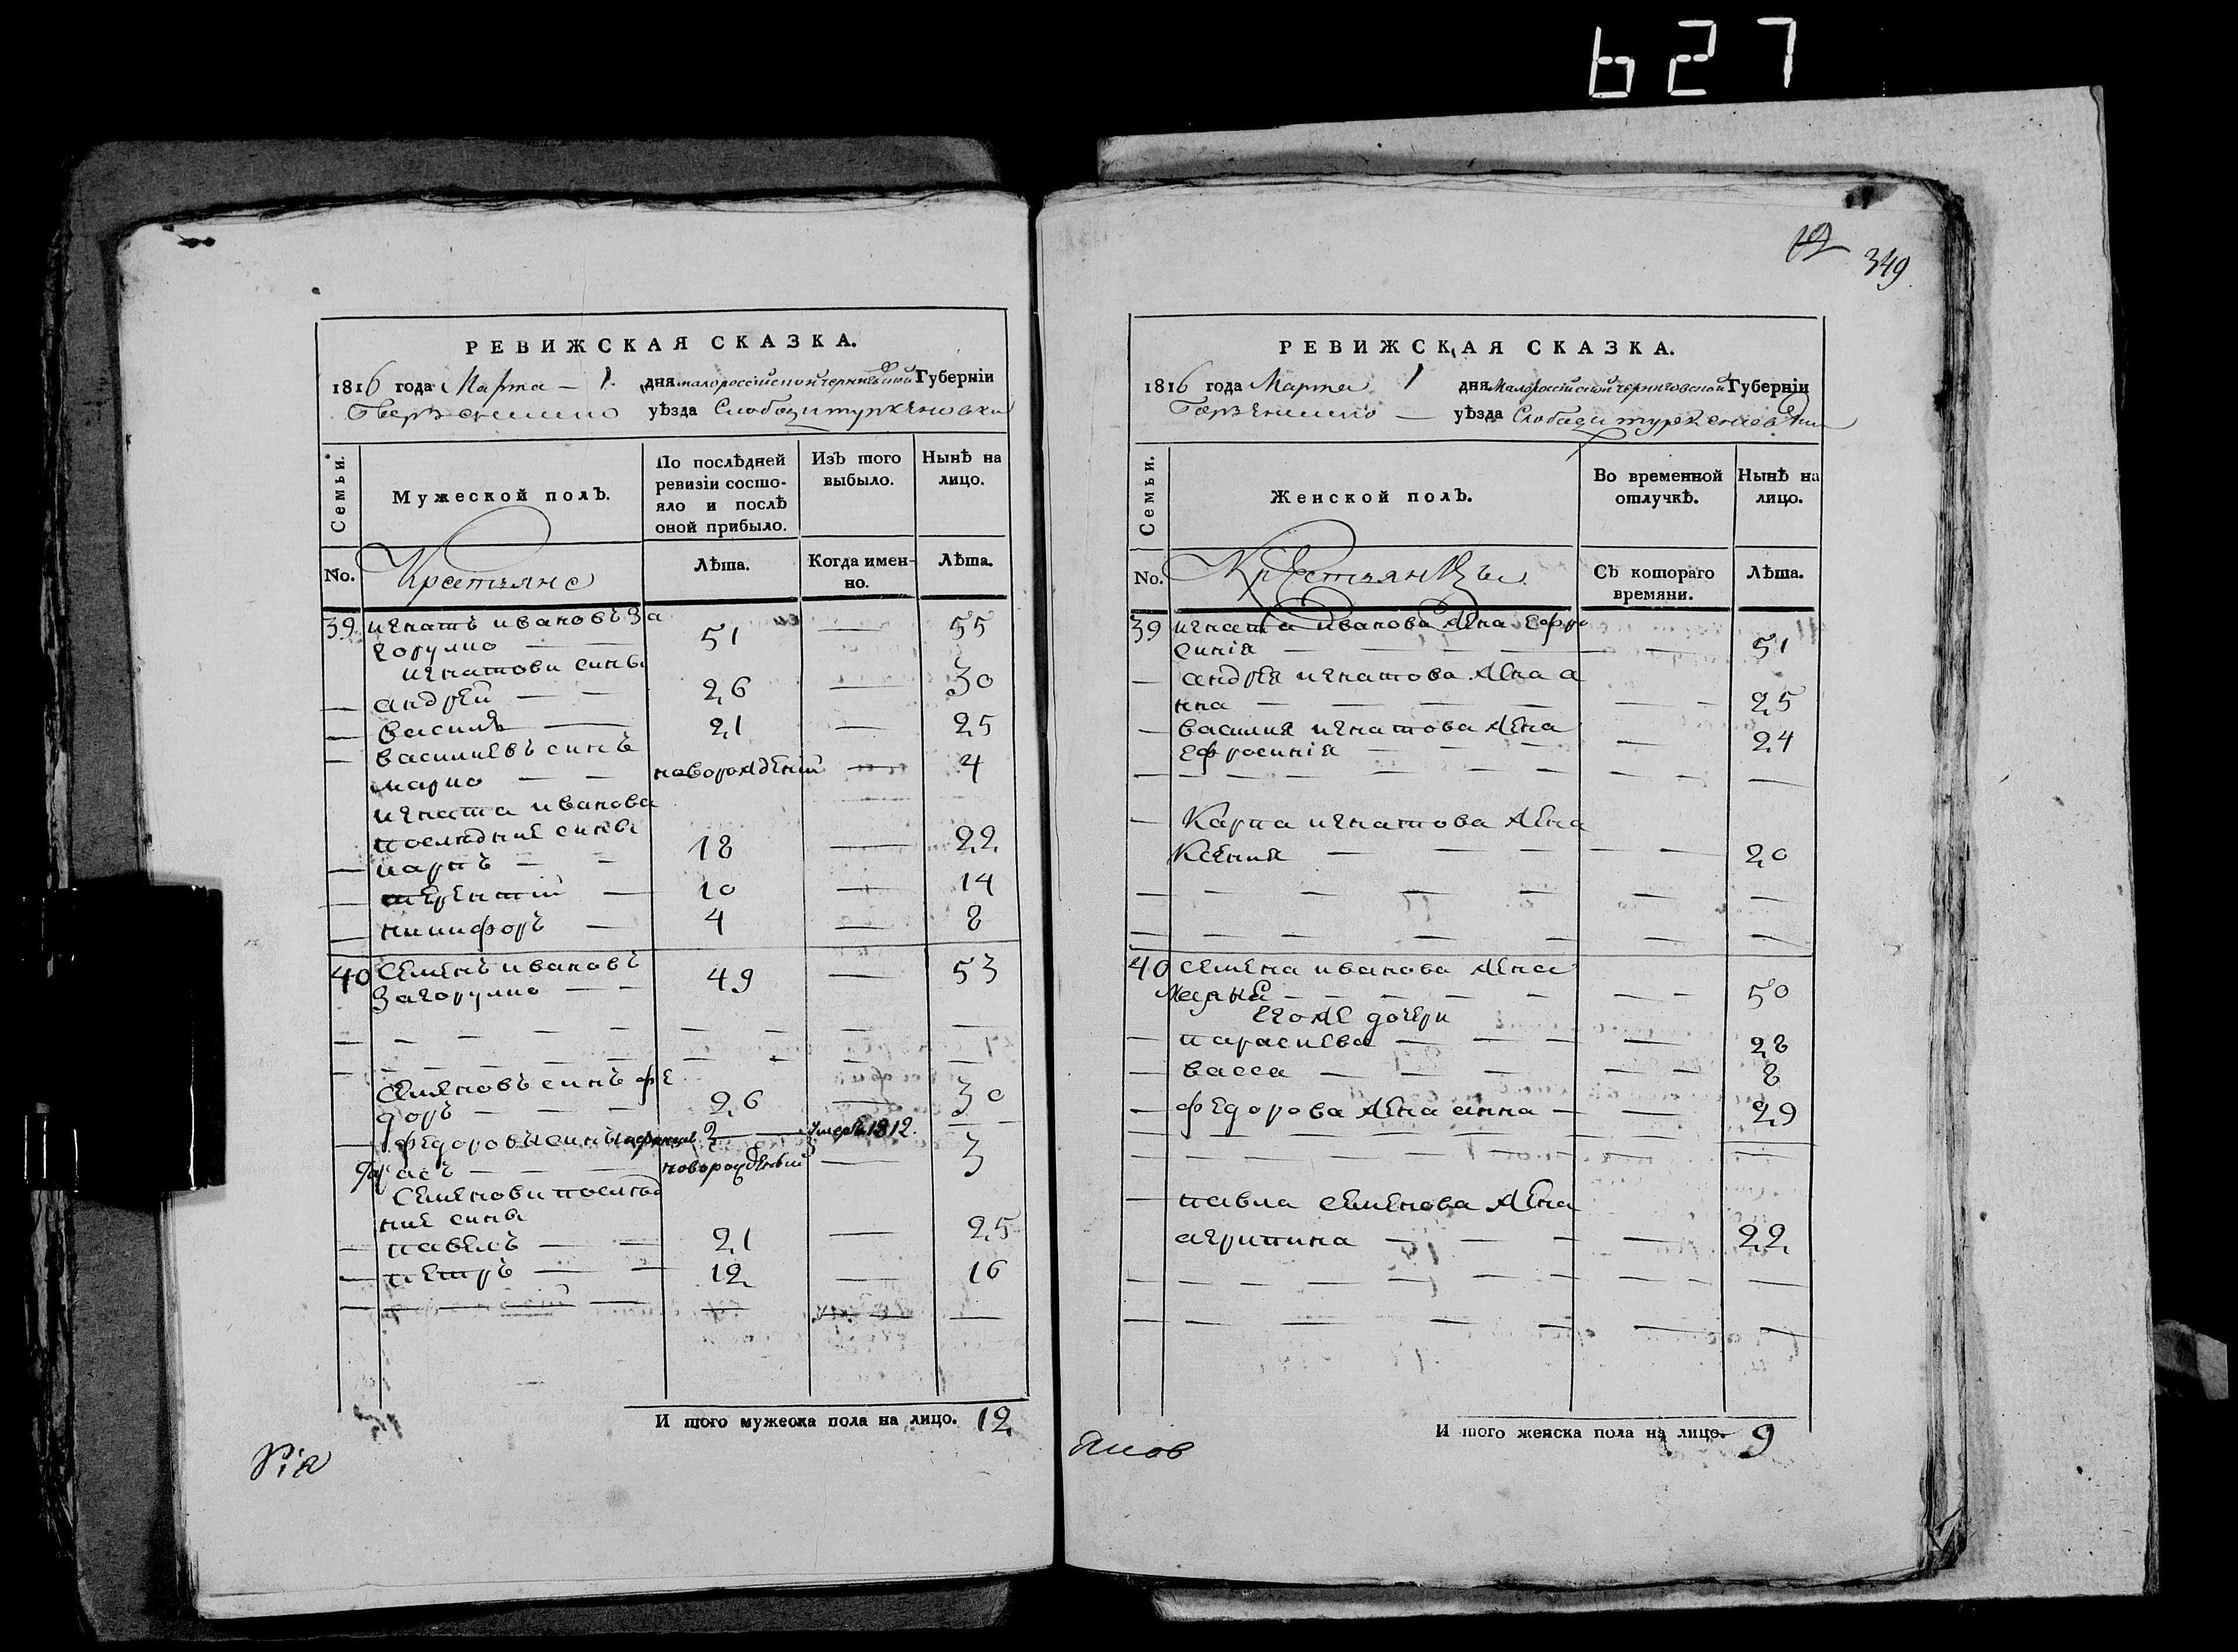 627
12
349
РЕВИЖСКАЯ СКАЗКА.
1816 года Марта 1 дня малороссійской черниговской Губерніи
уѣзда Слободи туркеновки
Семьи.
Мужеской полъ.
По послѣдней ревизіи состояло и послѣ оной прибыло.
Изъ того выбыло.
Нынѣ на лицо.
No.
Крестьяне
Лѣта.
Когда именно.
Лѣта.
39 игнатъ ивановъ за
горулко — — 51 — 55
игнатови сины
— андрей — — 26 — 30
— василь — 21 — 25
— василиевъ синъ
марко — — новорожденій — 4
игната иванова
последние сины
— карпъ — — 18 — 22
— терентій — 10 — 14
— никифоръ — 4 — 8
40 Семенъ ивановъ
загорулко — — 49 — 53
Семеновъ синъ фе
доръ — — — 26 — 30
— федоровы сины 2 — умеръ 1812. —
— — новорожденый — 3
Семенови послед
ние сины
— павелъ — — 21 — 25
— петръ — — 12 — 16
И того мужеска пола на лицо. 12
РЕВИЖСКАЯ СКАЗКА.
1816 года Марта 1 дня Малороссійской черниговской Губерніи
уѣзда Слободи туркеновки
Семьи.
Женской полъ.
Во временной отлучкѣ.
Нынѣ на лицо.
No.
Крестьянкы
Съ котораго времяни.
Лѣта.
39 игната иванова жена ефро
синія — — — — — — 51
— андрея игнатова жена а
нна — — — — — — 25
— василия игнатова жена
ефросинія — — — — 24
— Карпа игнатова жена
Ксения — — — — — — 20
40 семена иванова жена
Марья — — — — — — 50
его же дочери
— параскева — — — — 28
— васса — — — — — 8
— федорова жена анна — — 29
— павла семенова жена
агрипина — — — — 22
И того женска пола на лицо. 9